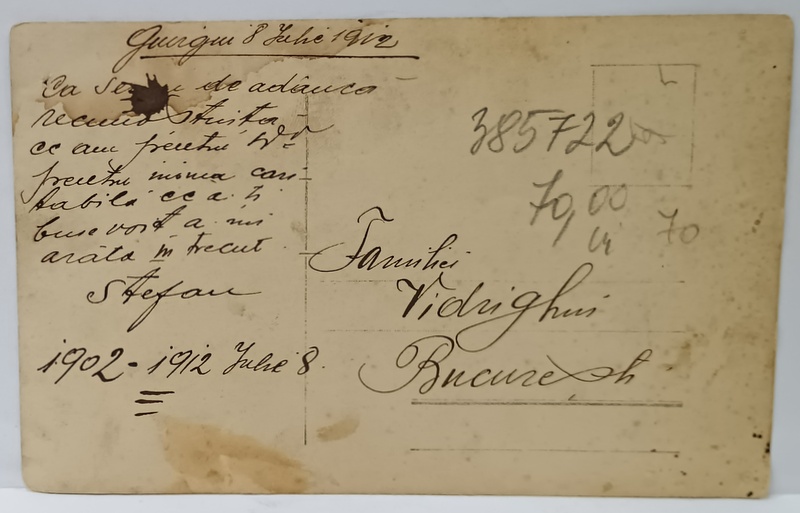 Giurgiu 8 Iulie 1912
Ca semn de adâncă
recunoștință
ce am pentru Dv
pentru inima cari-
tabilă ce ați
busevoit a mi
arăta în trecut
Stefan
1902 - 1912 Iulie 8.
385722
70,00
70
Familiei
Vidrighin
București